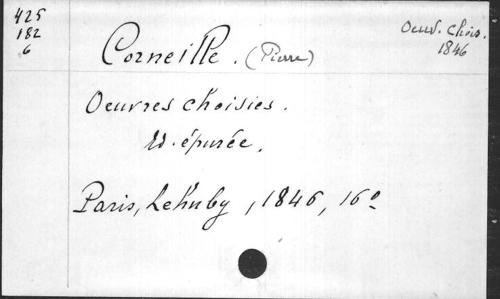 425
182
6
Oeuv. Chois.
1846
Corneille. (Pierre)
Oeuvres choisies.
Ed. épurée.
Paris, Lehuby, 1846, 16º